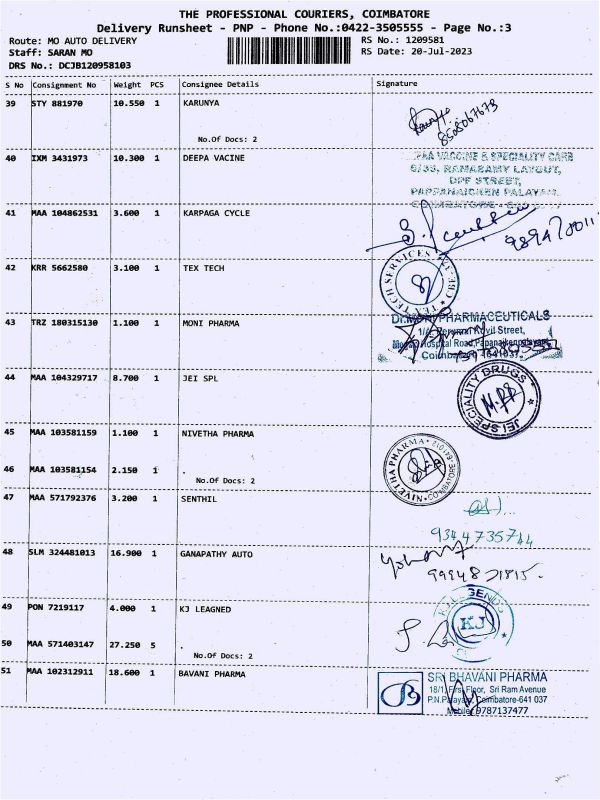 THE PROFESSIONAL COURIERS, COIMBATORE
Delivery Runsheet - PNP - Phone No.:0422-3505555 - Page No.:3
Route: MO AUTO DELIVERY
RS No.: 1209581
Staff: SARAN MO
RS Date: 20-Jul-2023
DRS No.: DCJB120958103
S No Consignment No Weight PCS Consignee Details Signature
39 STY 881970 10.550 1 KARUNYA
No.Of Docs: 2
8508067673
40 IXM 3431973 10.300 1 DEEPA VACINE
VACCINE & SPECIALITY CARE
RAMASAMY LAYOUT,
DPF STREET,
PAPPANAICKEN PALAYAM.
COIMBATORE
41 MAA 104862531 3.600 1 KARPAGA CYCLE
42 KRR 5662580 3.100 1 TEX TECH
TECH SERVICES
43 TRZ 180315130 1.100 1 MONI PHARMA
PHARMACEUTICALS
Kovil Street,
Hospital Road, Papanaikenpalayam
Coimbatore 641037
44 MAA 104329717 8.700 1 JEI SPL
JEI SPECIALITY DRUGS
45 MAA 103581159 1.100 1 NIVETHA PHARMA
NIVETHA PHARMA
COIMBATORE
46 MAA 103581154 2.150 1
No.Of Docs: 2
47 MAA 571792376 3.200 1 SENTHIL
9344735744
48 SLM 324481013 16.900 1 GANAPATHY AUTO
49 PON 7219117 4.000 1 KJ LEAGNED
KJ
50 MAA 571403147 27.250 5
No.Of Docs: 2
51 MAA 102312911 18.600 1 BAVANI PHARMA
SRI BHAVANI PHARMA
Floor, Sri Ram Avenue
P.N.Palayam, Coimbatore-641 037
Mobile: 9787137477